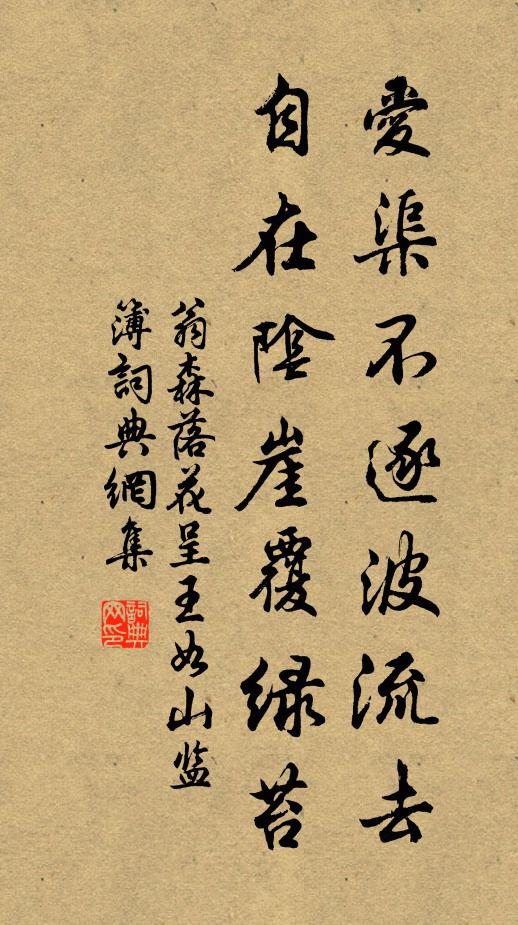 愛渠不逐波流去
自在陰崖覆綠苔
翁森落花呈王如山监
簿詞典網集
詞典
网印